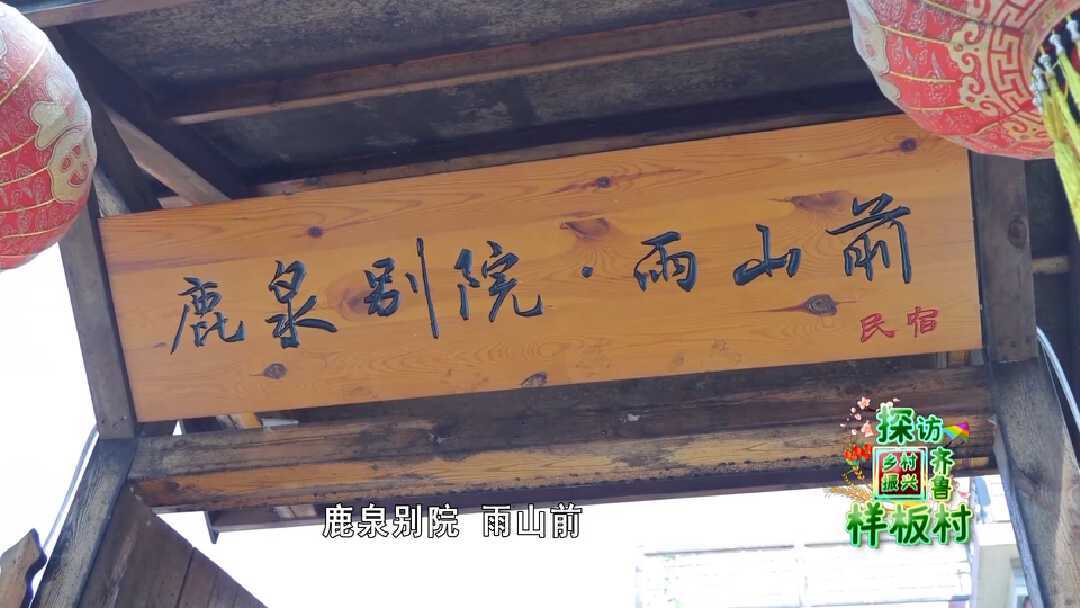 鹿泉别院·雨山前
民宿
探访
乡村
振兴
齐鲁
样板村
鹿泉别院 雨山前